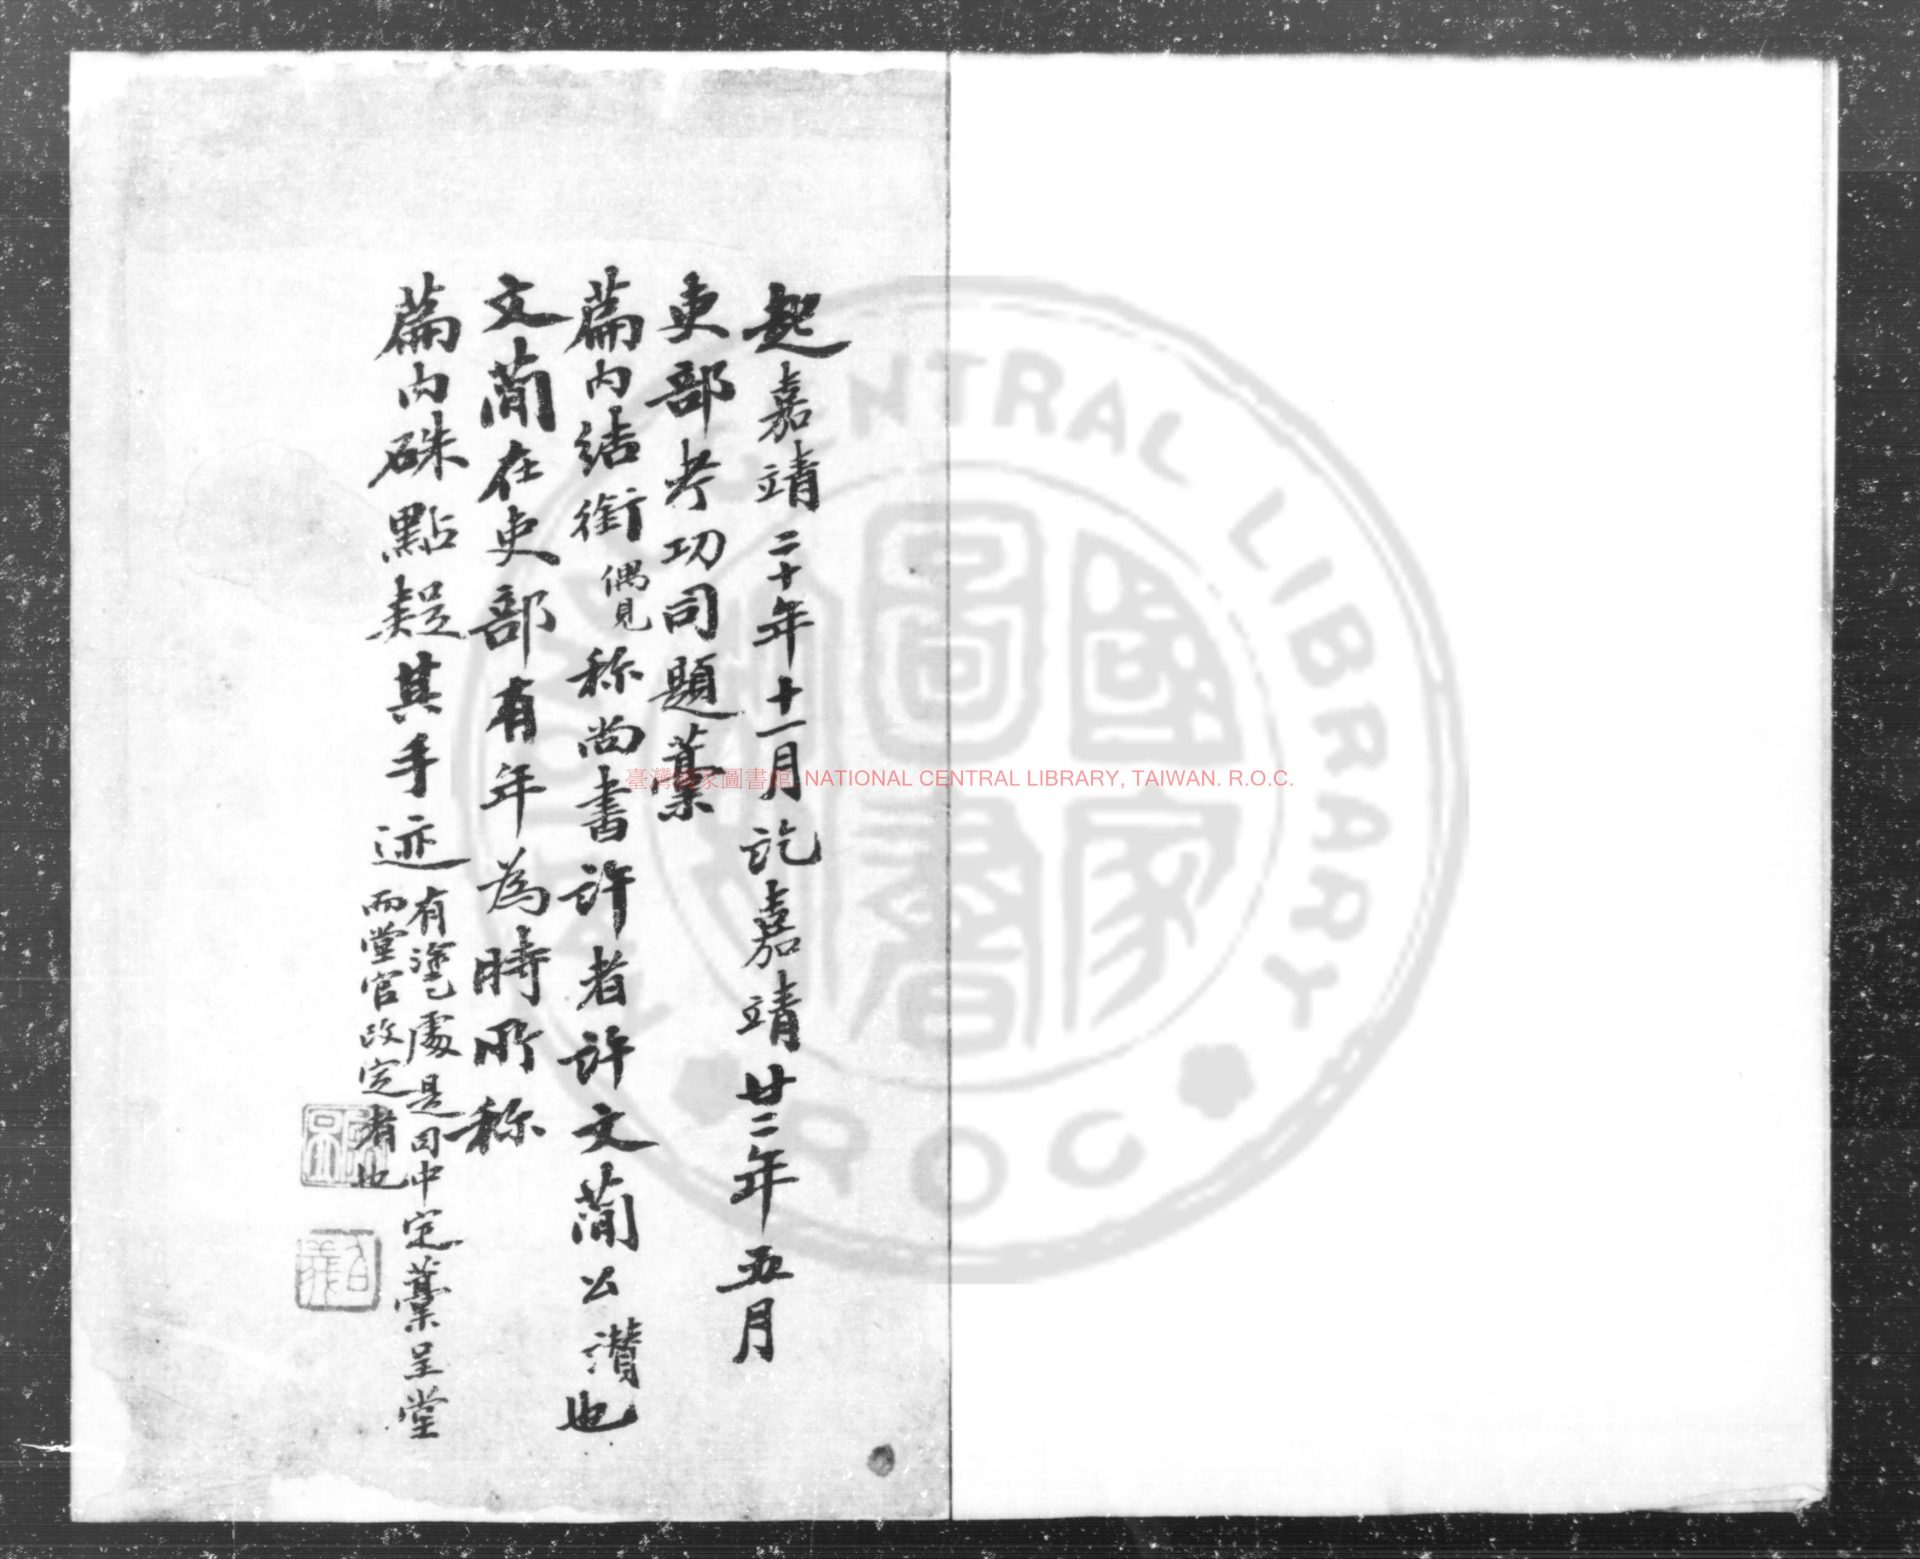 起嘉靖二十年十一月訖嘉靖廿二年五月
吏部考功司題藁
篇内結銜偶見称尚書許者許文蕳公讃也
文蕳在吏部有年為時所称
篇内硃點疑其手迹有塗乙處是司中定藁呈堂
而堂官改定者也
臺灣國家圖書館 NATIONAL CENTRAL LIBRARY, TAIWAN. R.O.C.
CENTRAL LIBRARY
ROC
國家圖書館